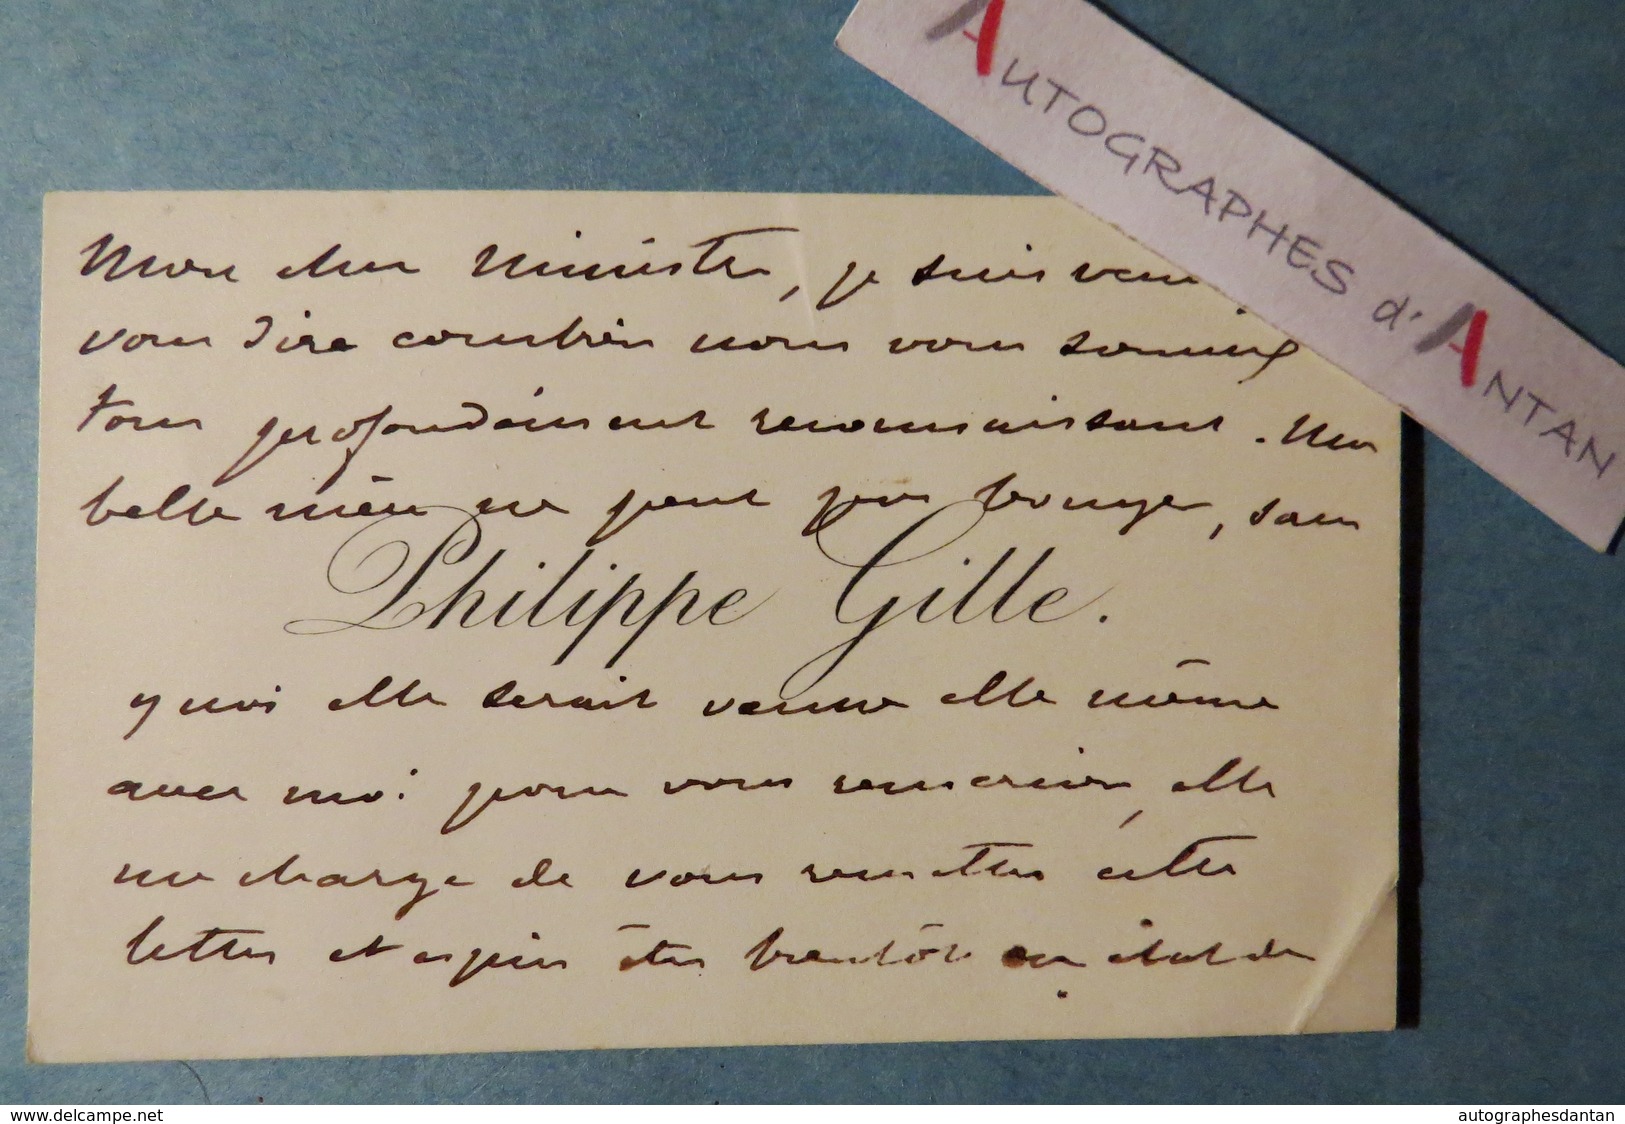 AUTOGRAPHES d'ANTAN
Mon cher Ministre, je suis venu
vous dire combien nous vous sommes
tous profondément reconnaissants. Ma
belle mère ne peut pas bouger, sans
Philippe Gille.
quoi elle serait venue elle même
avec moi pour vous remercier, elle
me charge de vous remettre cette
lettre et espère être bientôt en état de
www.delcampe.net
autographesdantan